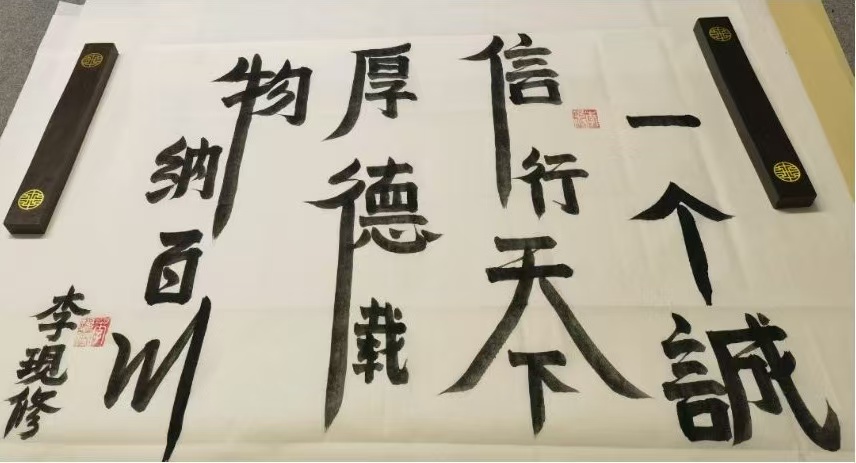 一个誠
信行天下
厚德载
物纳百川
李現修